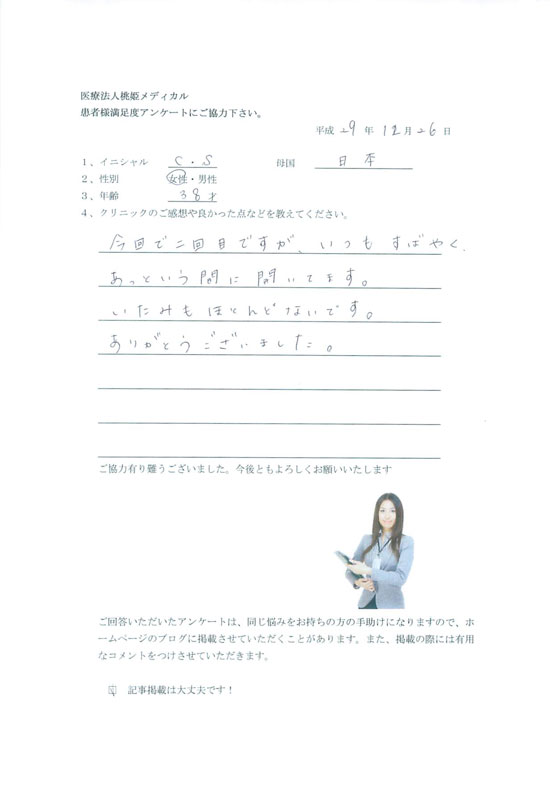 医療法人桃姫メディカル
患者様満足度アンケートにご協力下さい。
平成 29 年 12 月 26 日
1、イニシャル C・S 母国 日本
2、性別 女性・男性
3、年齢 38才
4、クリニックのご感想や良かった点などを教えてください。
今回で二回目ですが、いつもすばやく、
あっという間に 開いてます。
いたみもほとんどないです。
ありがとうございました。
ご協力有り難うございました。今後ともよろしくお願いいたします
ご回答いただいたアンケートは、同じ悩みをお持ちの方の手助けになりますので、ホ
ームページのブログに掲載させていただくことがあります。また、掲載の際には有用
なコメントをつけさせていただきます。
記事掲載は大丈夫です！